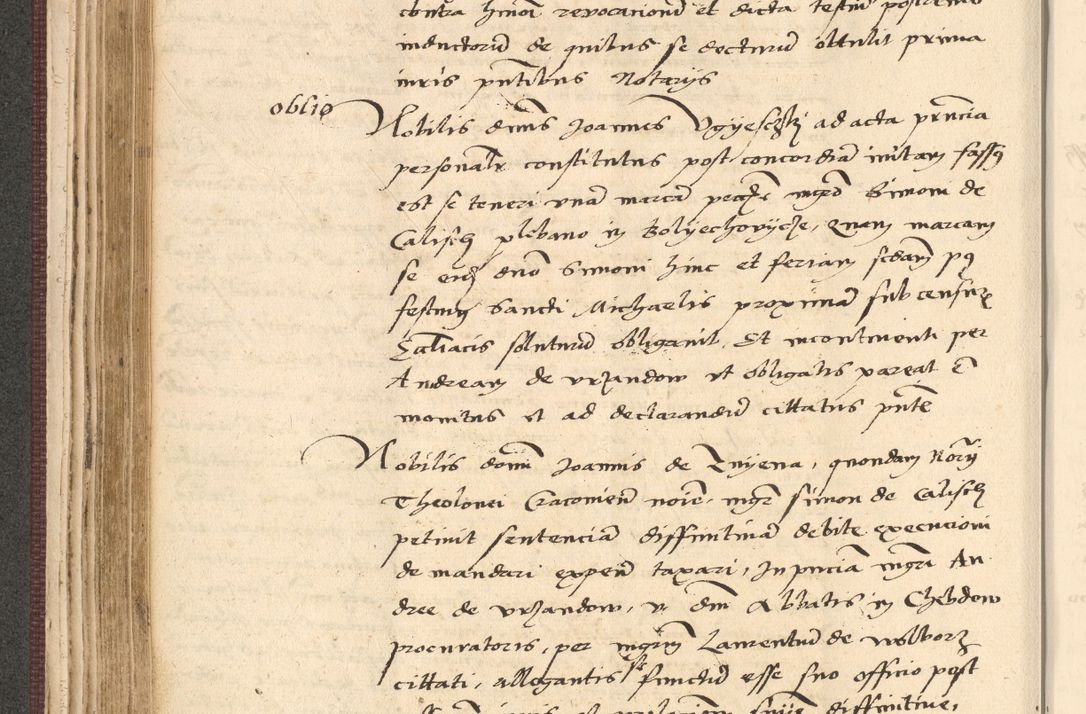 contra hmoi revocacionem et dicta testiu postremo
inductoru de quibus se docturu obtulit prima
iuris pntibus Notarys
oblio
Nobilis dnus Joannes Vgyeschki ad acta pnncia
personalr constitutus post concordia initam fassq
est se teneri vna marca pecuie mgro Simoni de
Calisch plebano in Bolyechovycze, Quam marcam
se eid dno Simoni hinc et feriam scdam pq
festum Sancti Michaelis proxima sub censur
Ecaliacis soluturu obligavit. Et incontinenti per
Andream de vrzandow vt obligatis pareat e
monitus et ad declarandu cittatus pnte
Nobilis domi Joannis de quondam Nory
Theolonei Cracovien noie, mgr Simon de Calisch
petivit sentencia diffinitiua debite execucioni
demandari expen taxari, In pncia mgri An
dree de vrzandow, v dni Abbatis in Chebdow
procuratoris, per mgrm Laurentiu de wolborz
cittati, allegantis se functu esse suo officio post
diffinitive,